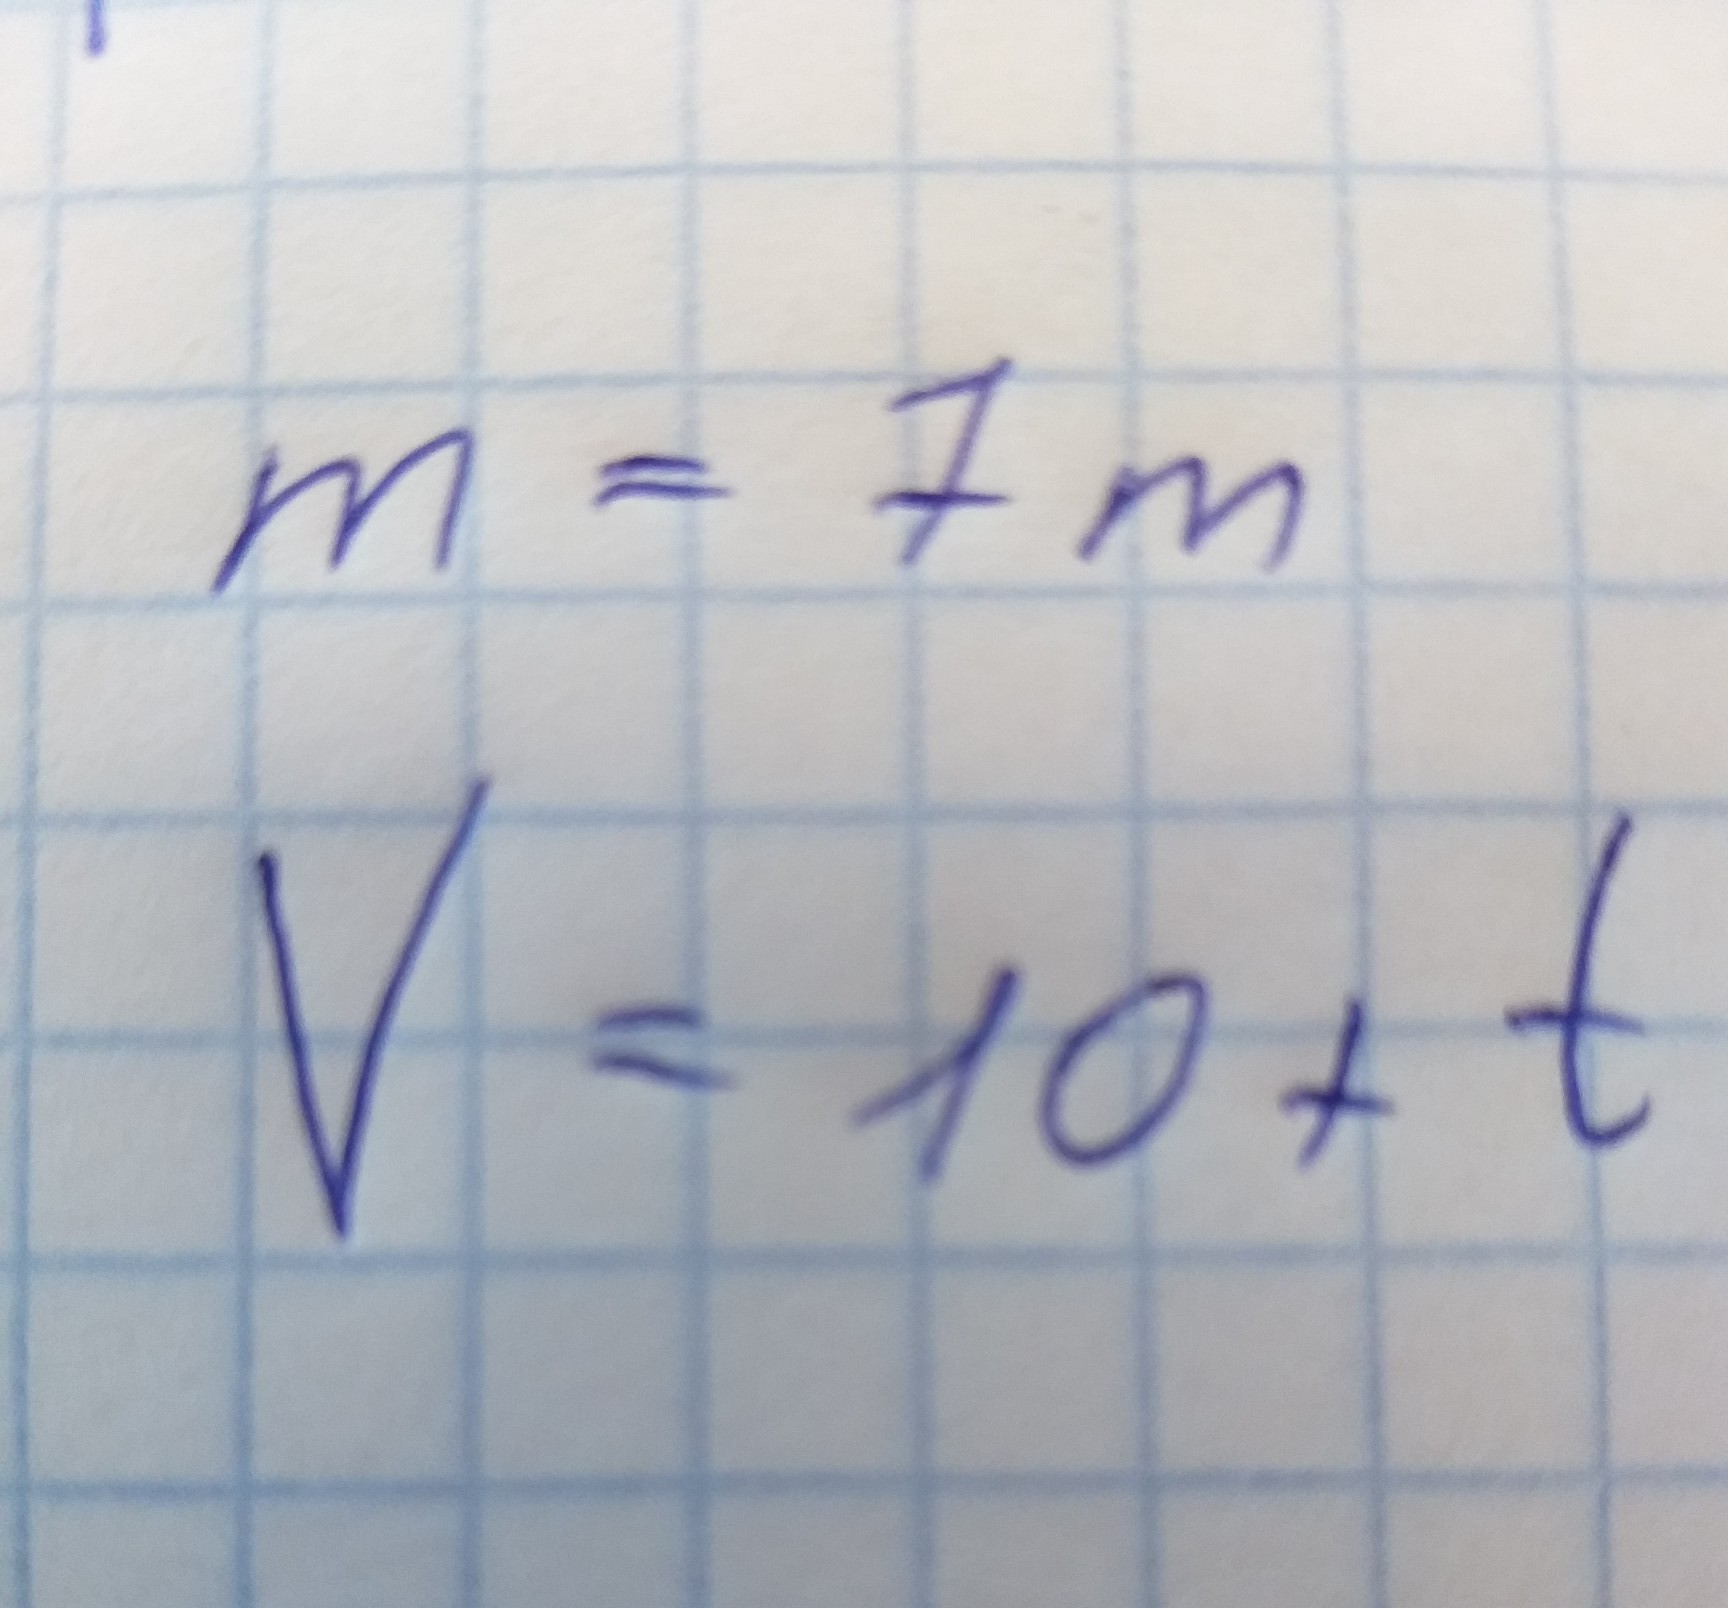 m = 7 m
V = 10 + t